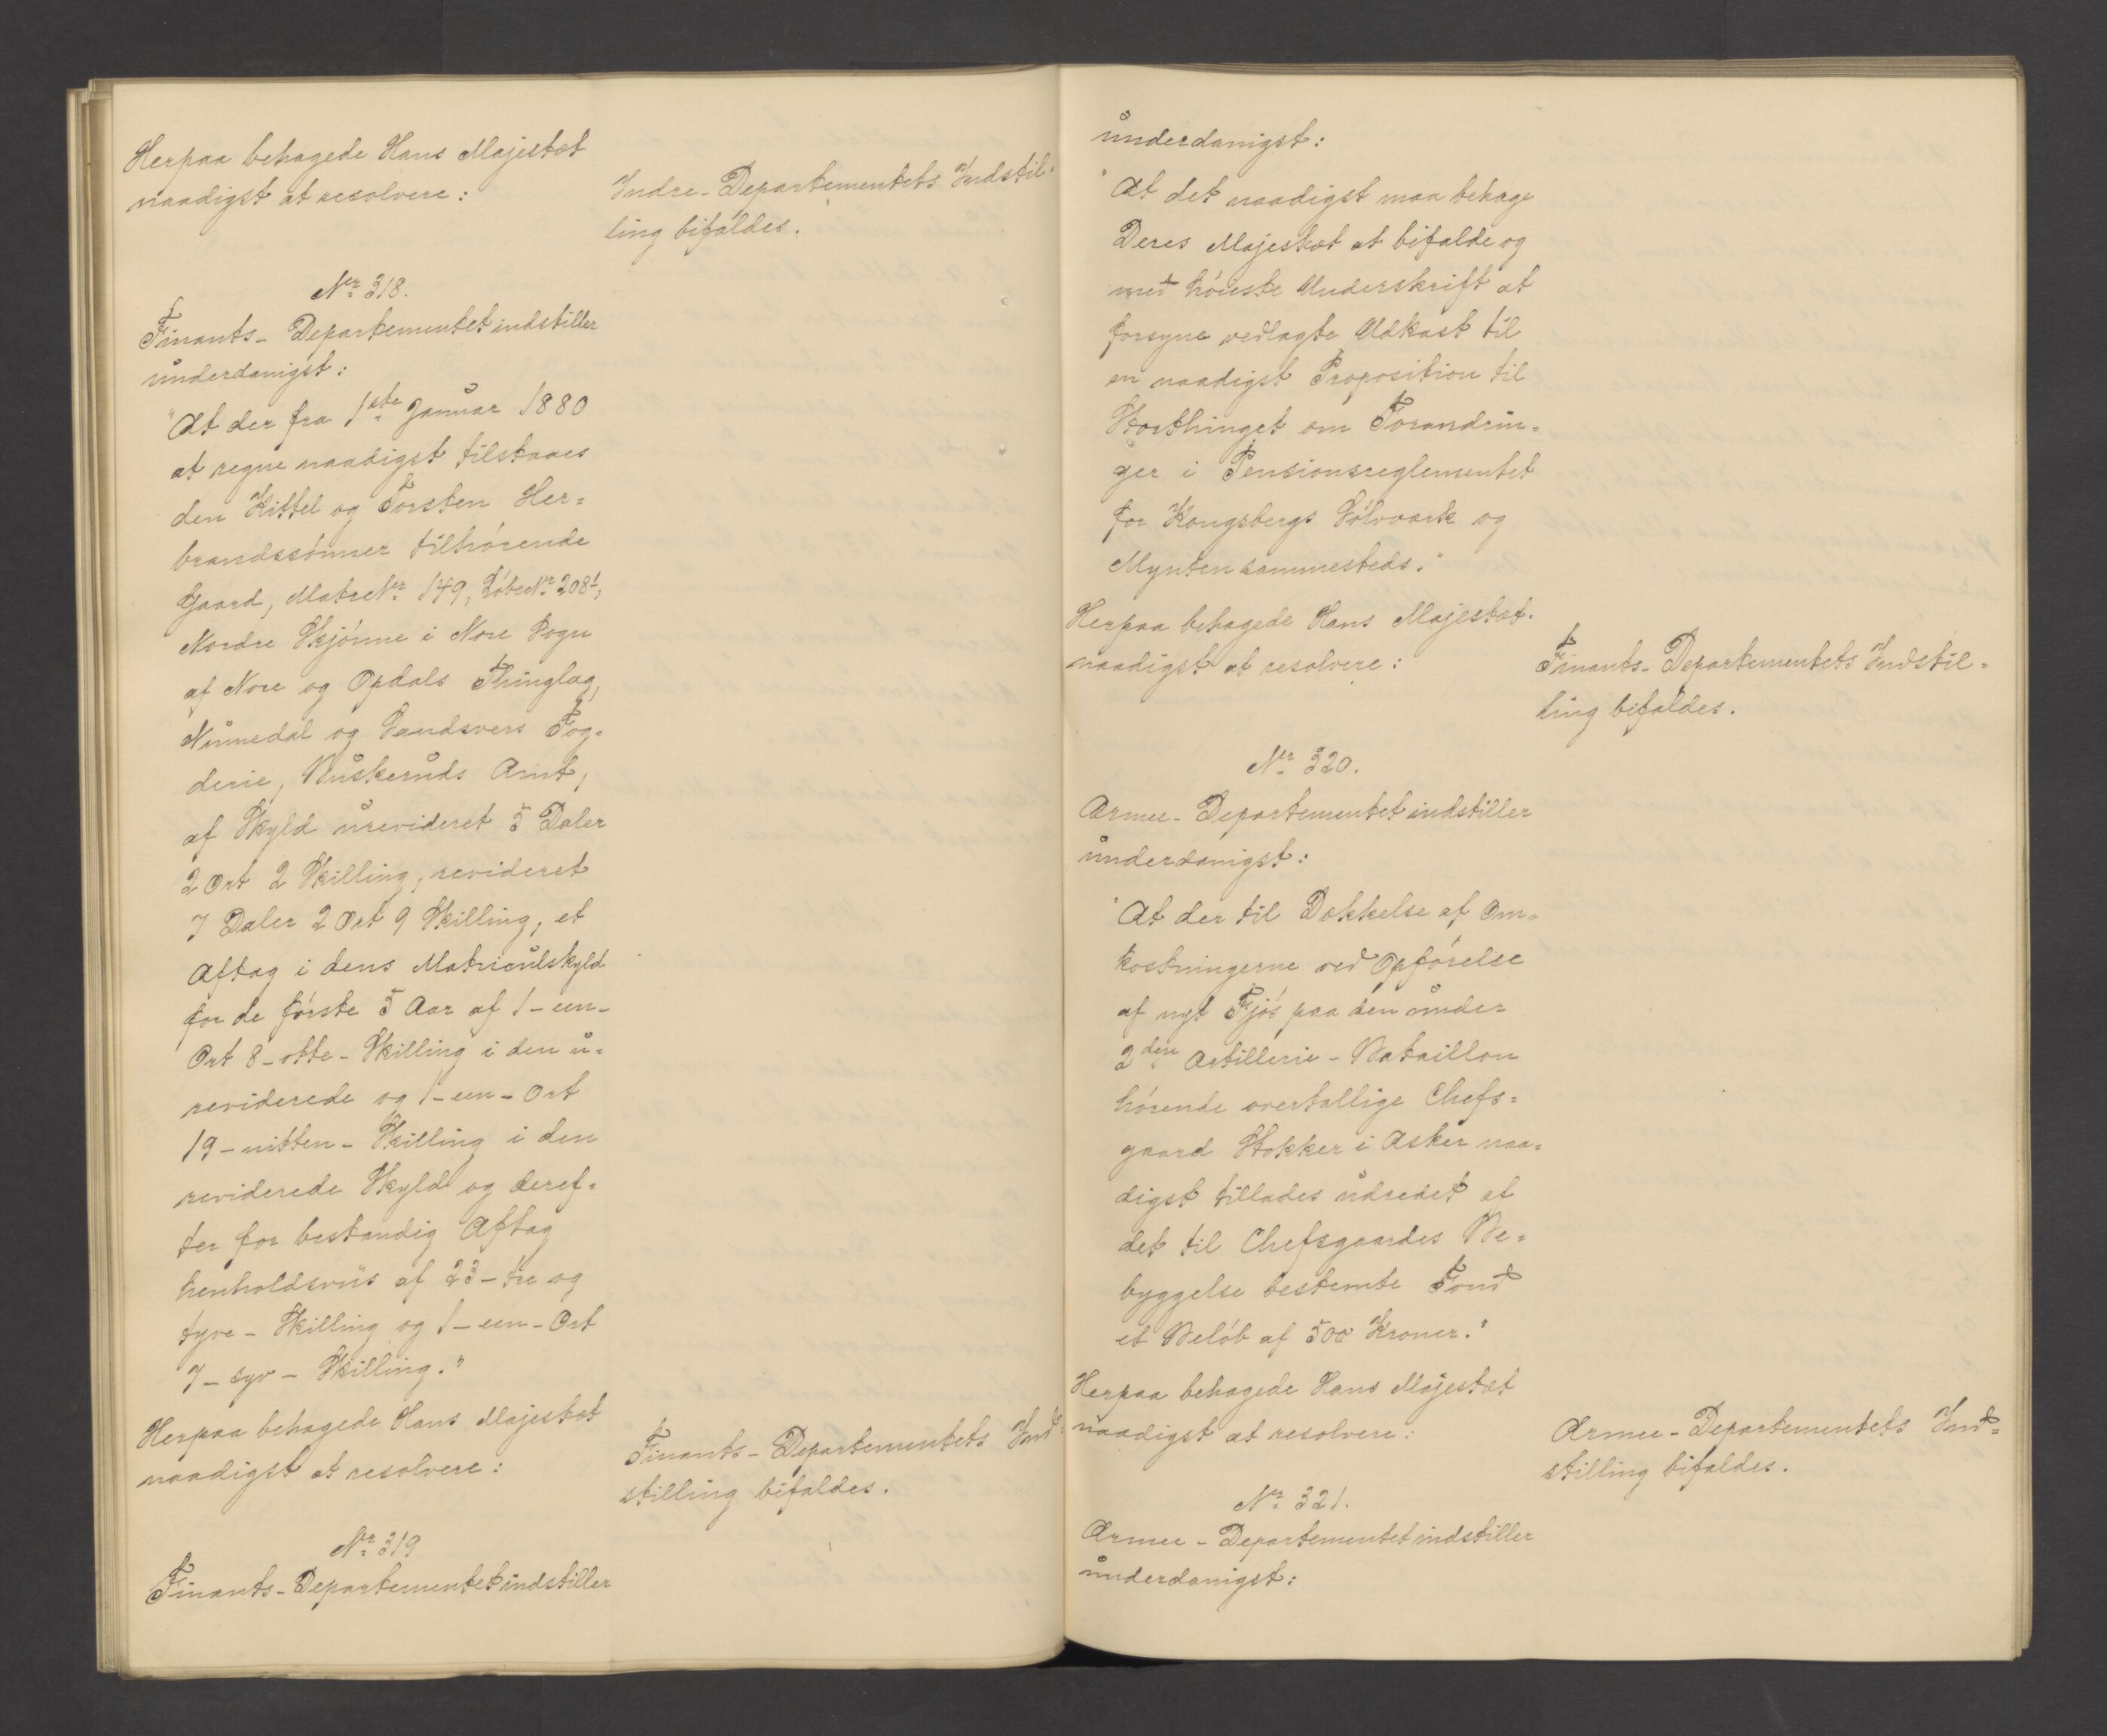 Herpaa behagede Hans Majestæt
naadigst at resolvere:
Indre-Departementets Indstil-
ling bifaldes.
No. 318.
Finants-Departementet indstiller
underdanigst:
"At der fra 1ste Januar 1880
at regne naadigst tilstaaes
den Kittel og Torsten Her=
brandssönner tilhörende
Gaard, Matr.Nr. 149, LöbeNr. 208 1,
Nordre Skjönne i Nore Sogn
af Nore og Opdals Thinglag,
Numedal og Sandsvers Fog=
derie, Buskeruds Amt,
af Skyld urevideret 5 Daler
2 Ort 2 Skilling, revideret
7 Daler 2 Ort 9 Skilling, et
Aftag i dens Matriculskyld
for de förste 5 Aar af 1-een-
Ort 8-otte-Skilling i den u=
reviderede og 1-een-Ort
19-nitten-Skilling i den
reviderede Skyld og deref=
ter for bestandig Aftag
henholdsviis af 23-tre og
tyve-Skilling og 1-een-Ort
7-syv-Skilling."
Herpaa behagede Hans Majestæt
naadigst at resolvere:
Finants-Departementets Ind=
stilling bifaldes.
Nr. 319
Finants-Departementet indstiller
underdanigst:
"At det naadigst maa behage
Deres Majestæt at bifalde og
med höieste Underskrift at
forsyne vedlagte Udkast til
en naadigst Proposition til
Storthinget om Forandrin=
ger i Pensionsreglementet
for Kongsbergs Sölvværk og
Mynten sammesteds."
Herpaa behagede Hans Majestæt
naadigst at resolvere:
Finants-Departementets Indstil=
ling bifaldes.
Nr. 320.
Armee-Departementet indstiller
underdanigst:
"At der til Dækkelse af Om=
kostningerne ved Opförelse
af nyt Fjös paa den under
2den Artillerie-Bataillon
hörende overtallige Chefs=
gaard Stokker i Asker naa=
digst tillades udredet af
det til Chefsgaardes Be=
byggelse bestemte Fond
et Belöb af 500 Kroner."
Herpaa behagede Hans Majestæt
naadigst at resolvere:
Armee-Departementets Ind=
stilling bifaldes.
Nr. 321.
Armee-Departementet indstiller
underdanigst: